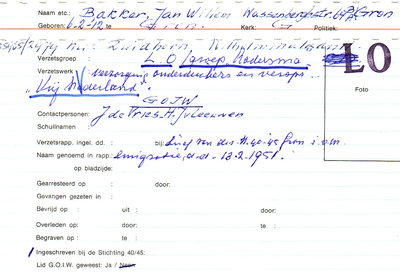 Naam etc.: Bakker, Jan Willem Wassenberghstr.
Geboren: 6-2-12 te: Gron. Kerk: G Politiek:
Zuidhorn, Wilhelminalaan
Verzetsgroep L.O. (groep Rodesma)
Verzetswerk: verzorging onderduikers en versp.
"Vrij Nederland".
G.O.I.W.
LO
Foto
Contactpersonen: J de Vries. H. Vleeuwen
Schuilnaam :
Verzetsrapp. ingel. dd. : bij: Lijst van des. H. 40-45 Gron i.o.m.
Naam genoemd in rapp.: emigratie, d.d. 13-2-1951.
op bladzijde:
Gearresteerd op : door:
Gevangen gezeten in :
Bevrijd op : uit : door:
Overleden op: door: te :
Begraven op : te :
Ingeschreven bij de Stichting 40/45:
Lid G.O.I.W. geweest: Ja / Neen